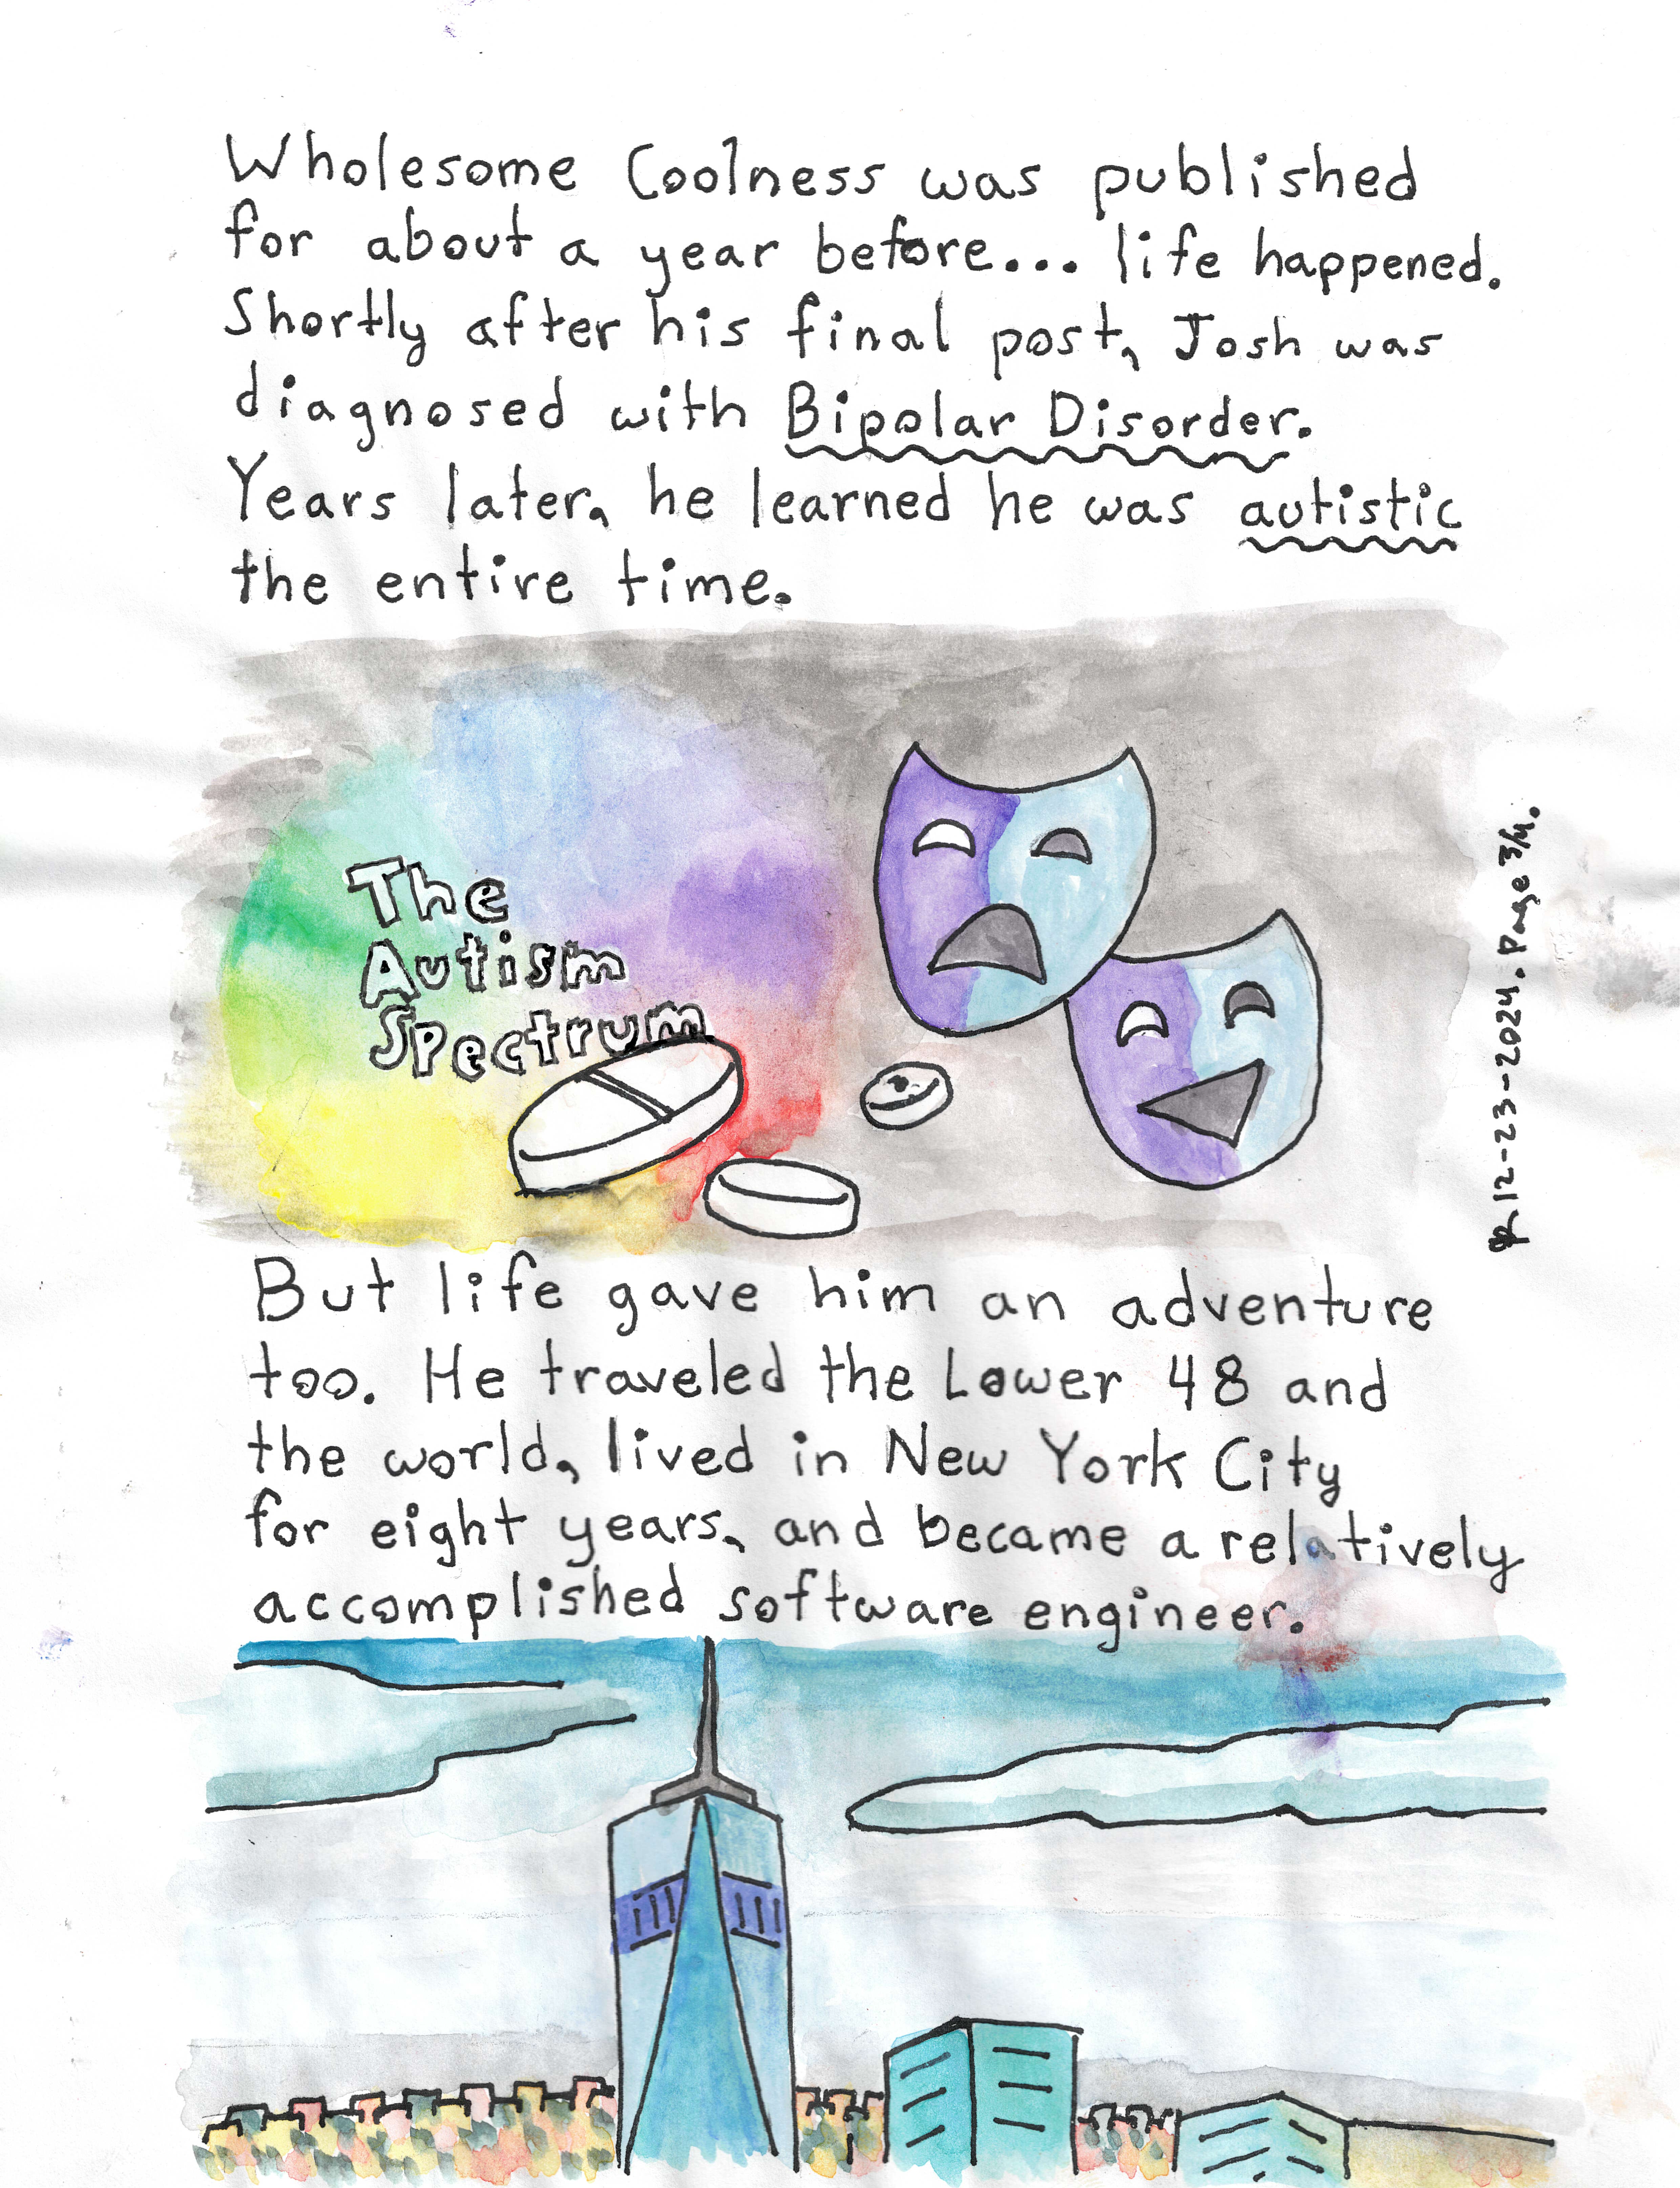 Wholesome Coolness was published
for about a year before... life happened.
Shortly after his final post, Josh was
diagnosed with Bipolar Disorder.
Years later, he learned he was autistic
the entire time.
The
Autism
Spectrum
12-23-2024. Page 3/4.
But life gave him an adventure
too. He traveled the Lower 48 and
the world, lived in New York City
for eight years, and became a relatively
accomplished software engineer.